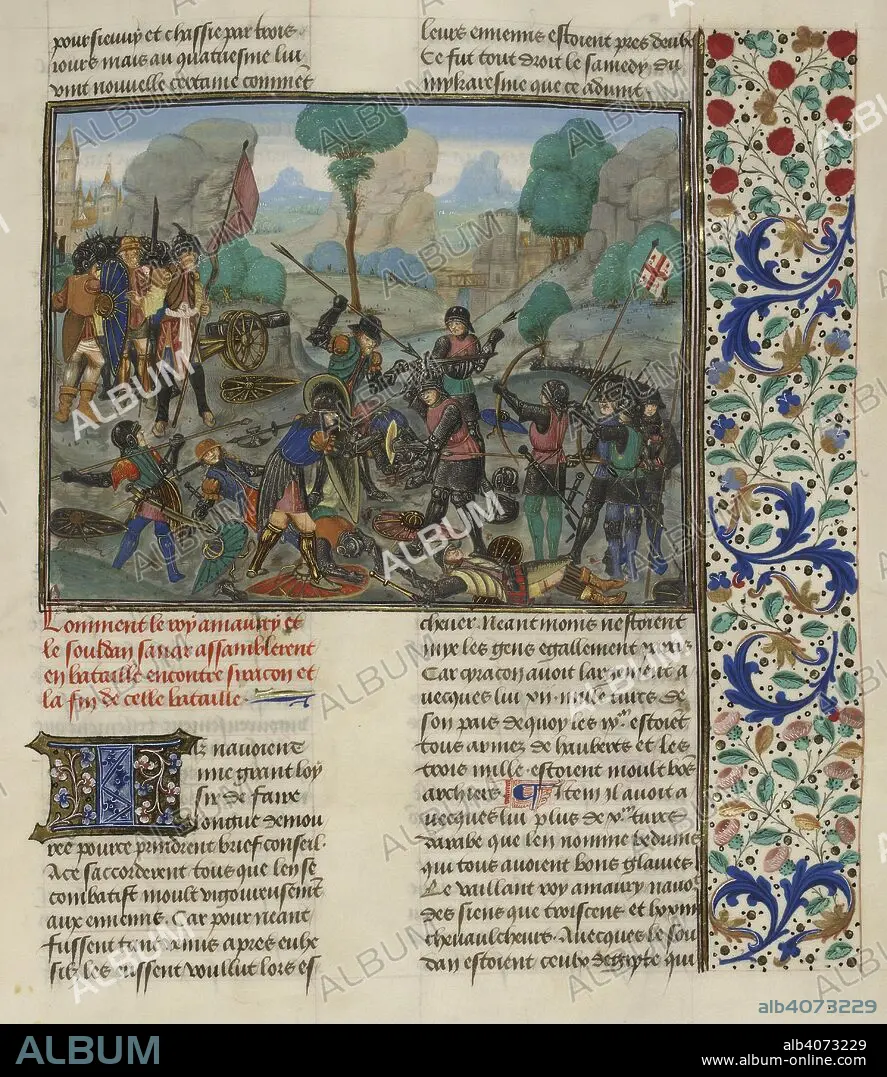 poursieuuy et chassie par trois
iours mais au quatriesme lui
vint nouuelle certaine comment
leurs ennemis estoient pres deulx
Ce fut tout droit le samedy du
my karesme que ce aduint.
Comment le roy amaury et
le souldan sanar assamblerent
en bataille encontre siracon et
la fin de celle bataille.
Ilz nauoient
mie grant loy
sir de faire
longue demou
ree pource prindrent brief conseil.
A ce saccorderent tous que len se
combatist moult vigoureusemt
aux ennemis. Car pour neant
fussent tant venus apres eulx
silz les eussent voullut lors es
cheuer. Neantmoins nestoient
mie les gens egallement partis
Car ciracon auoit largement a
uecques lui xii. mille turcs de
son pais de quoy les ixm estoiet
tous armez de hauberts et les
trois mille estoient moult bos
archiers. Item il auoit a
uecques lui plus de xm turcs
darabe que len nomme beduins
qui tous auoient bons glaiues
Le vaillant roy amaury nauoit
des siens que trois cens et lxxiiii
cheuaulcheurs. Auecques le soul
dan estoient ceulx degipte qui
ALBUM
alb4073229
ALBUM
alb4073229
www.album-online.com